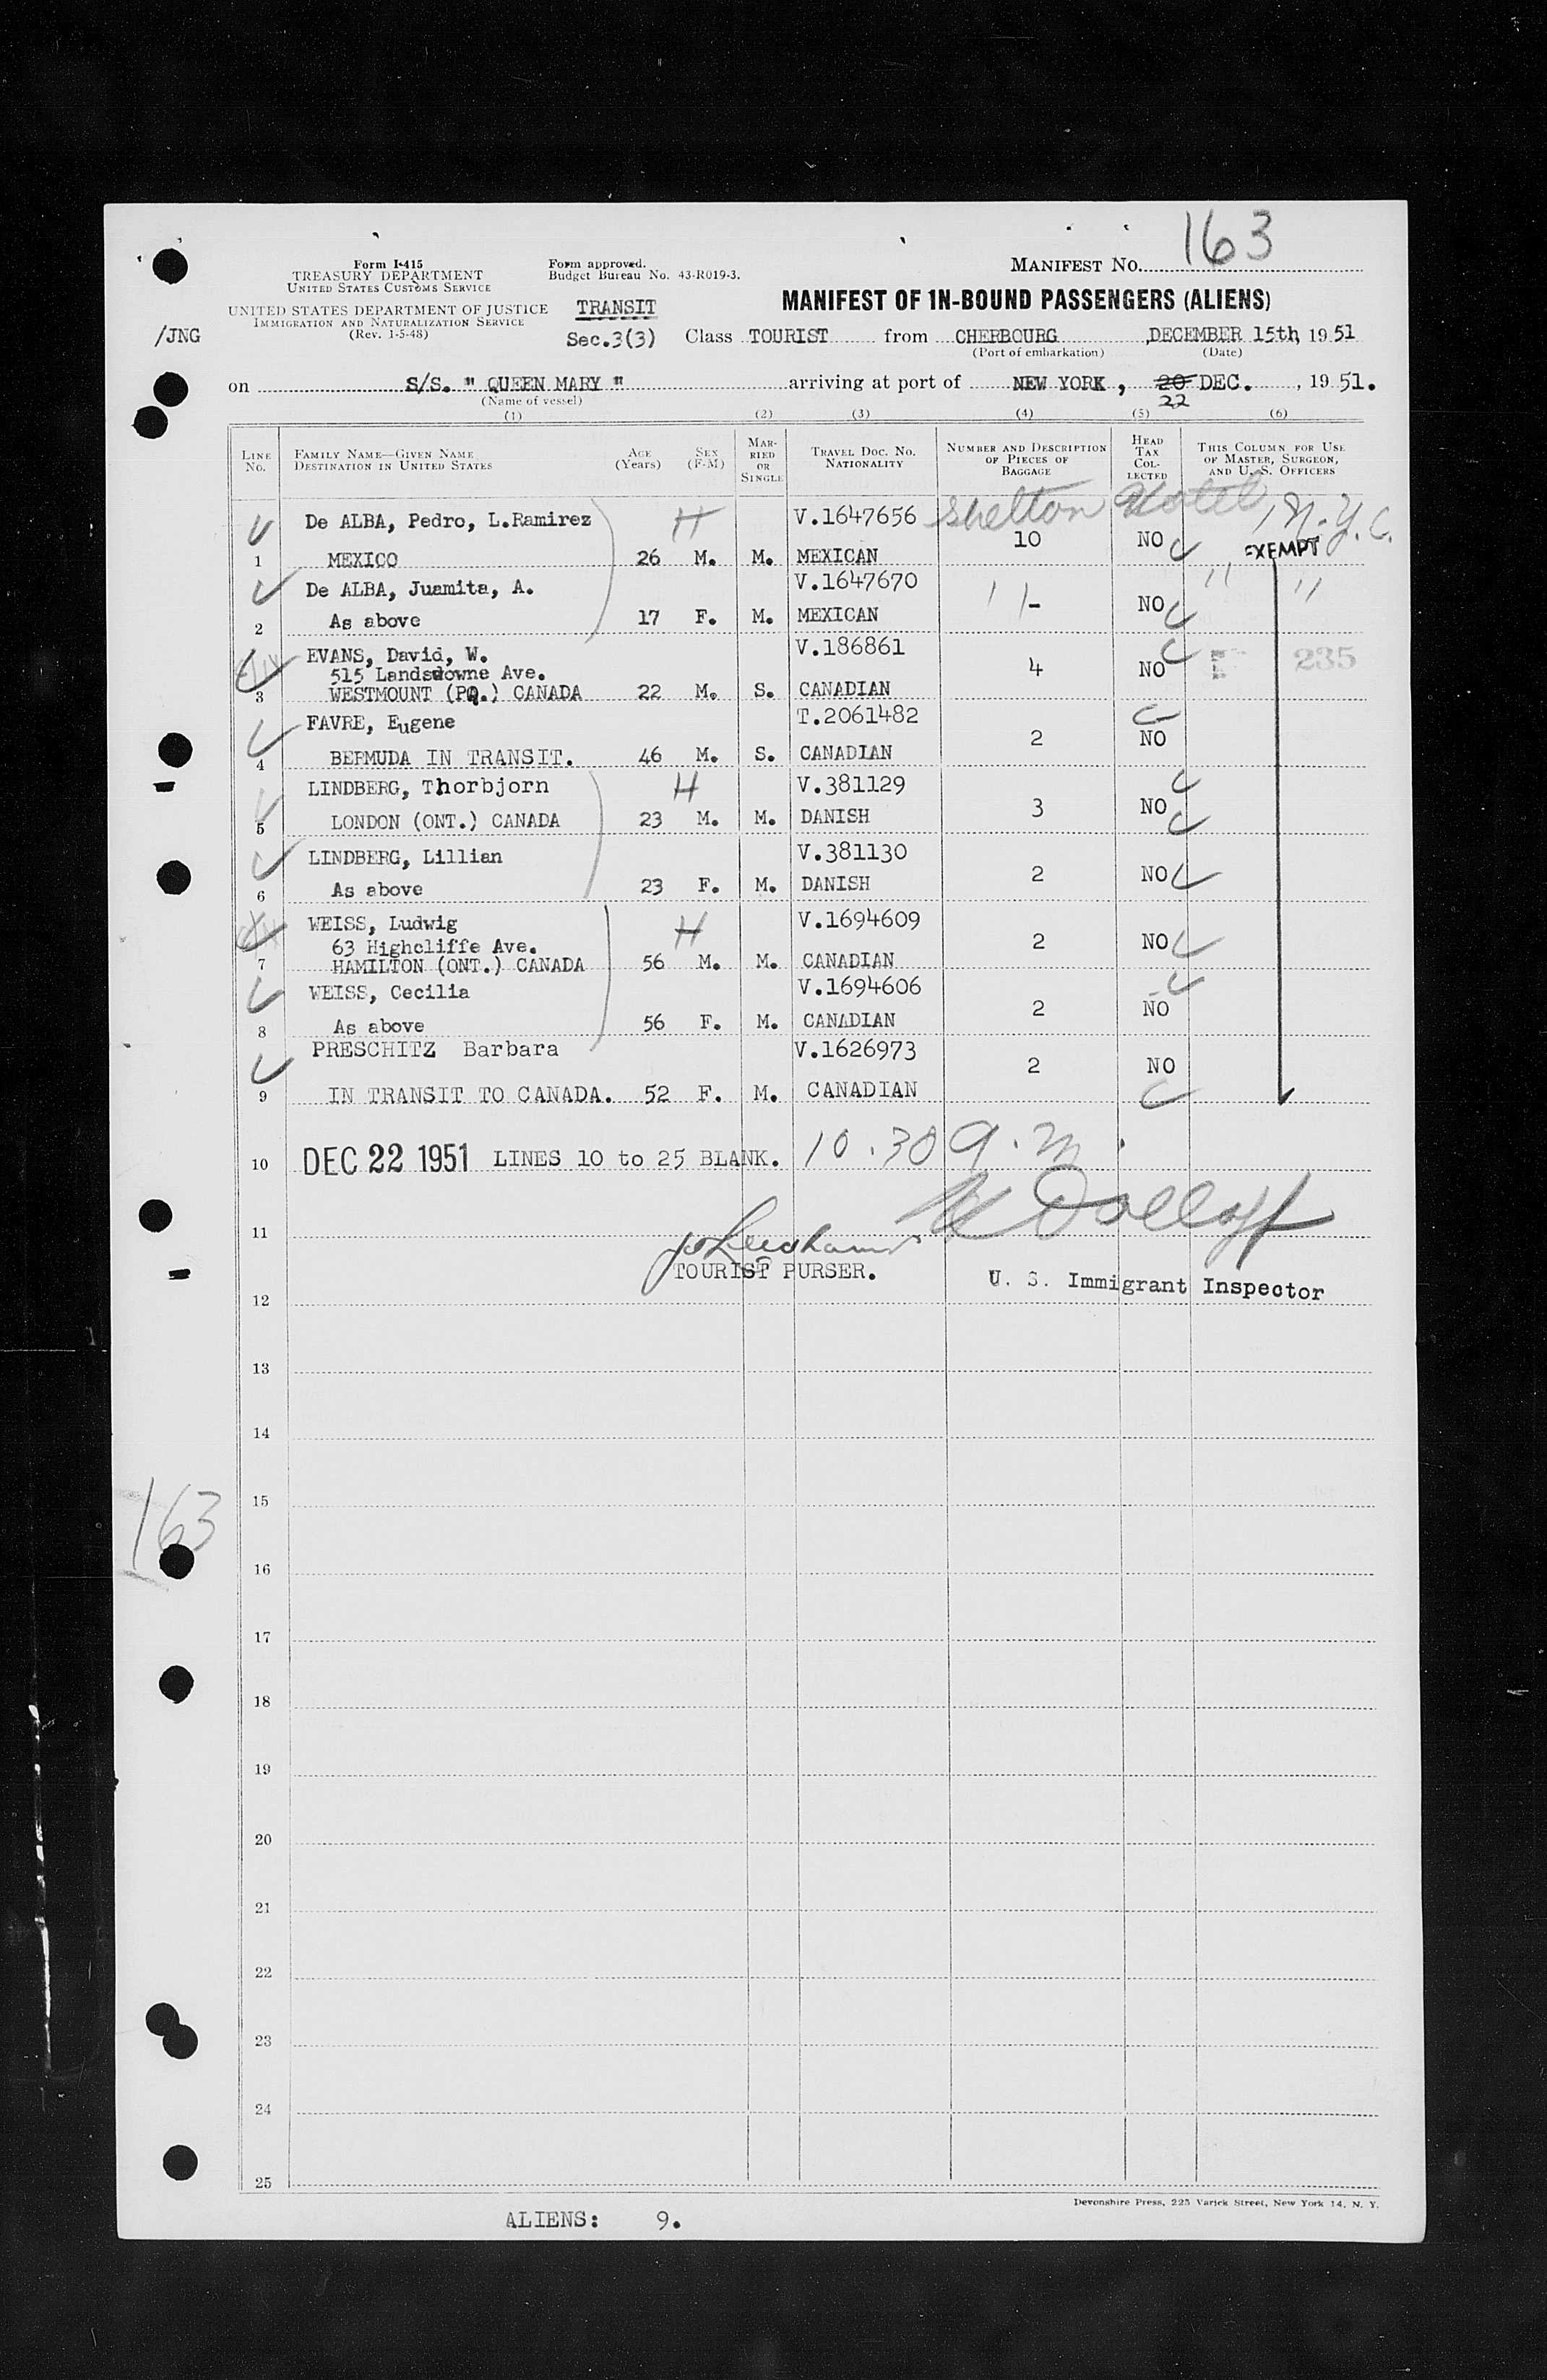 163
Form I-415
TREASURY DEPARTMENT
UNITED STATES CUSTOMS SERVICE
Form approved.
Budget Bureau No. 43-R019-3.
MANIFEST No.
UNITED STATES DEPARTMENT OF JUSTICE
IMMIGRATION AND NATURALIZATION SERVICE
(Rev. 1-5-48)
TRANSIT
MANIFEST OF IN-BOUND PASSENGERS (ALIENS)
/JNG
Sec.3(3) Class TOURIST from CHERBOURG, DECEMBER 15th, 1951
(Port of embarkation) (Date)
on S/S. " QUEEN MARY " arriving at port of NEW YORK, 20 DEC., 1951.
22
(Name of vessel)
(1) (2) (3) (4) (5) (6)
LINE No. FAMILY NAME—GIVEN NAME DESTINATION IN UNITED STATES AGE (Years) SEX (F-M) MARRIED OR SINGLE TRAVEL DOC. NO. NATIONALITY NUMBER AND DESCRIPTION OF PIECES OF BAGGAGE HEAD TAX COLLECTED THIS COLUMN FOR USE OF MASTER, SURGEON, AND U. S. OFFICERS
De ALBA, Pedro, L.Ramirez H V.1647656 Shelton Hotel, N.Y.C.
1 MEXICO 26 M. M. MEXICAN 10 NO EXEMPT
De ALBA, Juamita, A. V.1647670 " "
2 As above 17 F. M. MEXICAN - NO
EVANS, David, W. V.186861
515 Landsdowne Ave. 4 NO 235
3 WESTMOUNT (PQ.) CANADA 22 M. S. CANADIAN
FAVRE, Eugene T.2061482
4 BERMUDA IN TRANSIT. 46 M. S. CANADIAN 2 NO
LINDBERG, Thorbjorn H V.381129
5 LONDON (ONT.) CANADA 23 M. M. DANISH 3 NO
LINDBERG, Lillian V.381130
6 As above 23 F. M. DANISH 2 NO
WEISS, Ludwig H V.1694609
63 Highcliffe Ave. 2 NO
7 HAMILTON (ONT.) CANADA 56 M. M. CANADIAN
WEISS, Cecilia V.1694606
8 As above 56 F. M. CANADIAN 2 NO
PRESCHITZ Barbara V.1626973
9 IN TRANSIT TO CANADA. 52 F. M. CANADIAN 2 NO
10 DEC 22 1951 LINES 10 to 25 BLANK. 10.30 a.m.
11
TOURIST PURSER. U. S. Immigrant Inspector
12
13
14
15
163
16
17
18
19
20
21
22
23
24
25
Devonshire Press, 225 Varick Street, New York 14, N. Y.
ALIENS: 9.